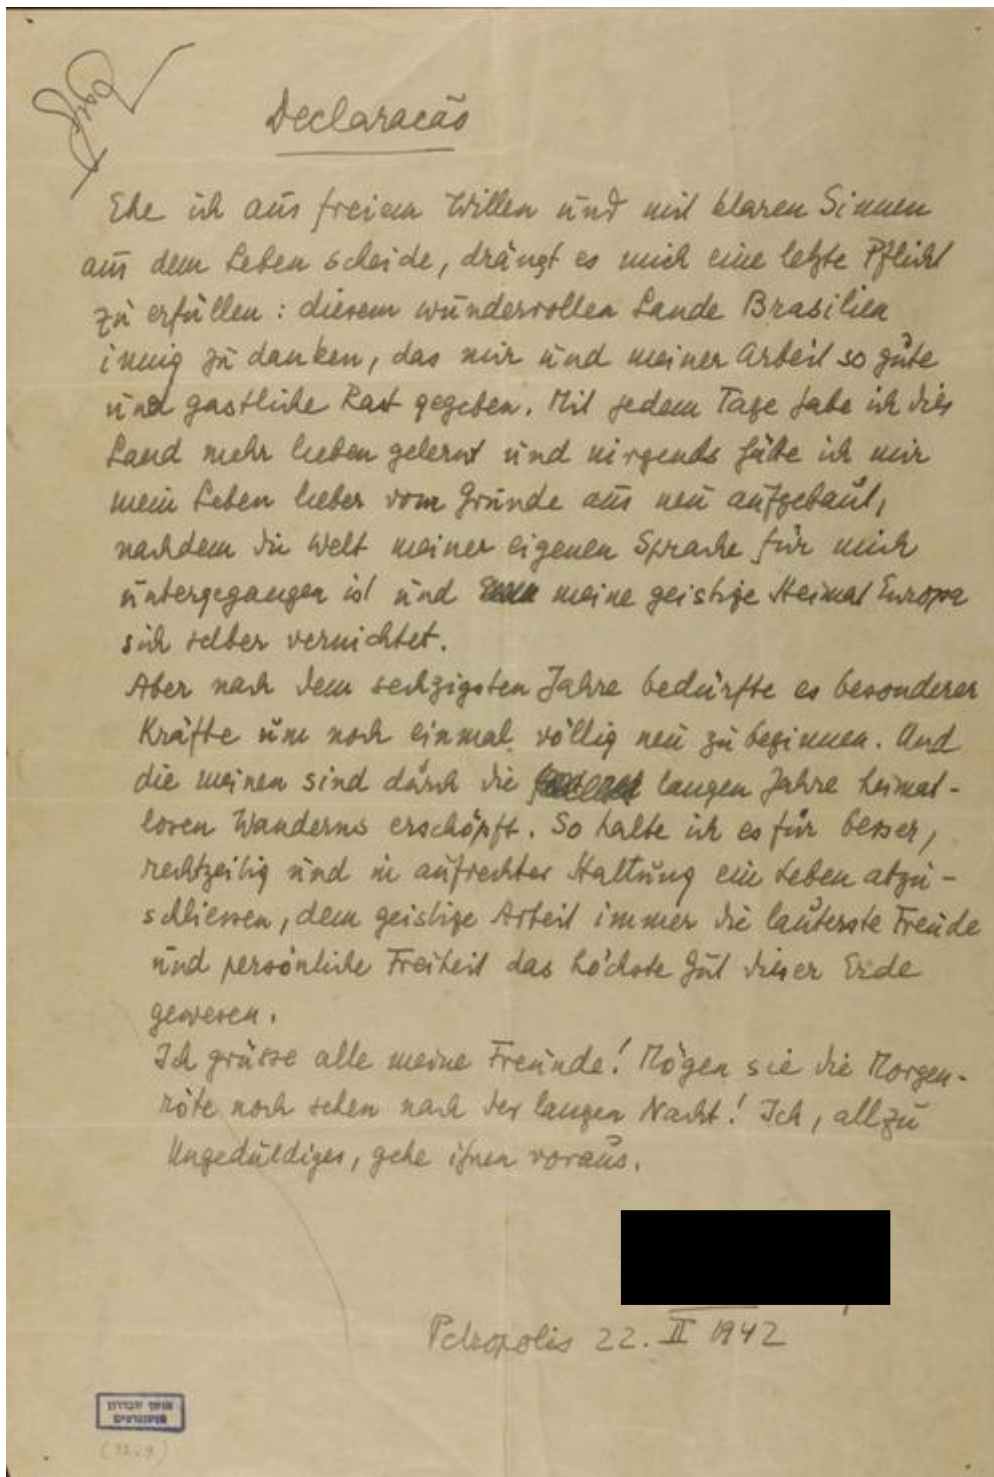 Declaracão
Ehe ich aus freiem Willen und mit klaren Sinnen
aus dem Leben scheide, drängt es mich eine letzte Pflicht
zu erfüllen: diesem wundervollen Lande Brasilien
innig zu danken, das mir und meiner Arbeit so gute
und gastliche Rast gegeben. Mit jedem Tage habe ich dies
Land mehr lieben gelernt und nirgends hätte ich mir
mein Leben lieber vom Grunde aus neu aufgebaut,
nachdem die Welt meiner eigenen Sprache für mich
untergegangen ist und meine geistige Heimat Europa
sich selber vernichtet.
Aber nach dem sechzigsten Jahre bedürfte es besonderer
Kräfte um noch einmal völlig neu zu beginnen. Und
die meinen sind durch die langen Jahre heimat-
losen Wanderns erschöpft. So halte ich es für besser,
rechtzeitig und in aufrechter Haltung ein Leben abzu-
schliessen, dem geistige Arbeit immer die lauterste Freude
und persönliche Freiheit das höchste Gut dieser Erde
gewesen.
Ich grüsse alle meine Freunde! Mögen sie die Morgen-
röte noch sehen nach der langen Nacht! Ich, allzu
Ungeduldiger, gehe ihnen voraus.
Petropolis 22. II 1942